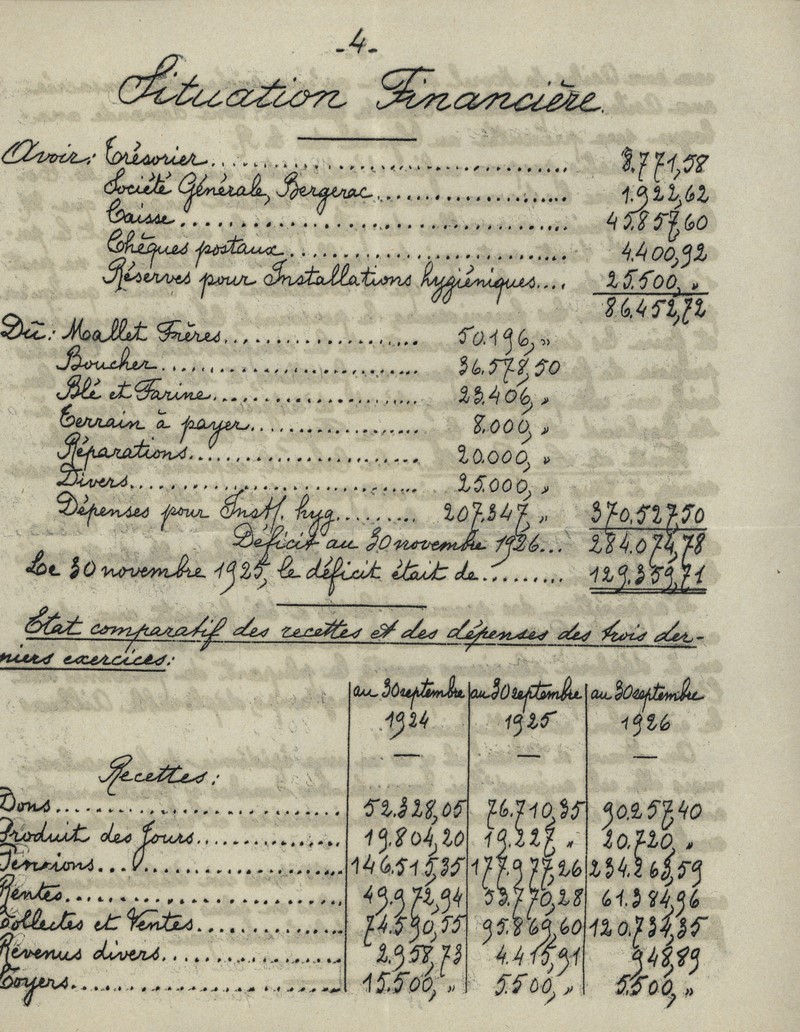 -4-
Situation Financière.
Avoir: Trésorier.............................. 8.771,58
Société Générale, Bergerac..................... 1.922,62
Caisse.............................. 45.857,60
Chèques postaux.............................. 4.400,92
Réserves pour Installations hygiéniques.... 25.500, "
86.452,72
Dû: Mallet Frères.................... 50.196, "
Boucher.......................... 36.578,50
Blé et Farine.................... 23.406, "
Terrain à payer................. 8.000, "
Réparations...................... 20.000, "
Divers........................... 25.000, "
Dépenses pour Inst/. hyg......... 207.347, " 370.527,50
Déficit au 30 novembre 1926... 284.074,78
Le 30 novembre 1925, le déficit était de......... 129.359,71
Etat comparatif des recettes et des dépenses des trois der-
niers exercices:
au 30 septembre au 30 septembre au 30 septembre
1924 1925 1926
Recettes:
Dons.............................. 52.328,05 76.710,35 90.257,40
Produit des Jours............... 19.804,20 19.227 " 20.720, "
Pensions........................ 146.515,35 177.977,26 234.263,59
Rentes.......................... 49.972,94 53.770,28 61.384,96
Collectes et Ventes............. 74.590,55 95.869,60 120.734,35
Revenus divers.................. 2.958,73 4.415,91 948,89
Loyers.......................... 15.500, " 5.500, " 5.500, "